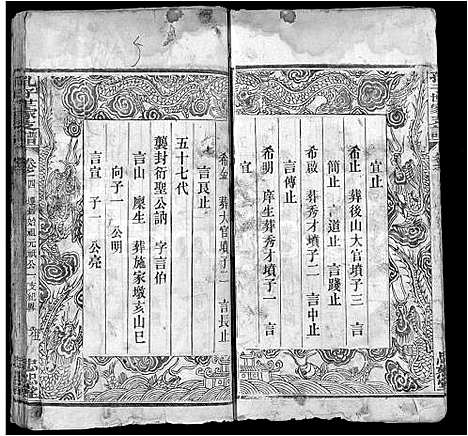 宜止
希止 葬後山大官墳子三 言
簡止 言道止 言踐止
希啟 葬秀才墳子二 言中止
言傳止
希明 庠生葬秀才墳子一 言
宜
希金 葬大官墳子二 言長止
言良止
五十七代
襲封衍聖公訥 字言伯
言山 廩生 葬施家墩亥山巳
向子一 公明
言宣 子一 公亮
卷二四
忠恕堂